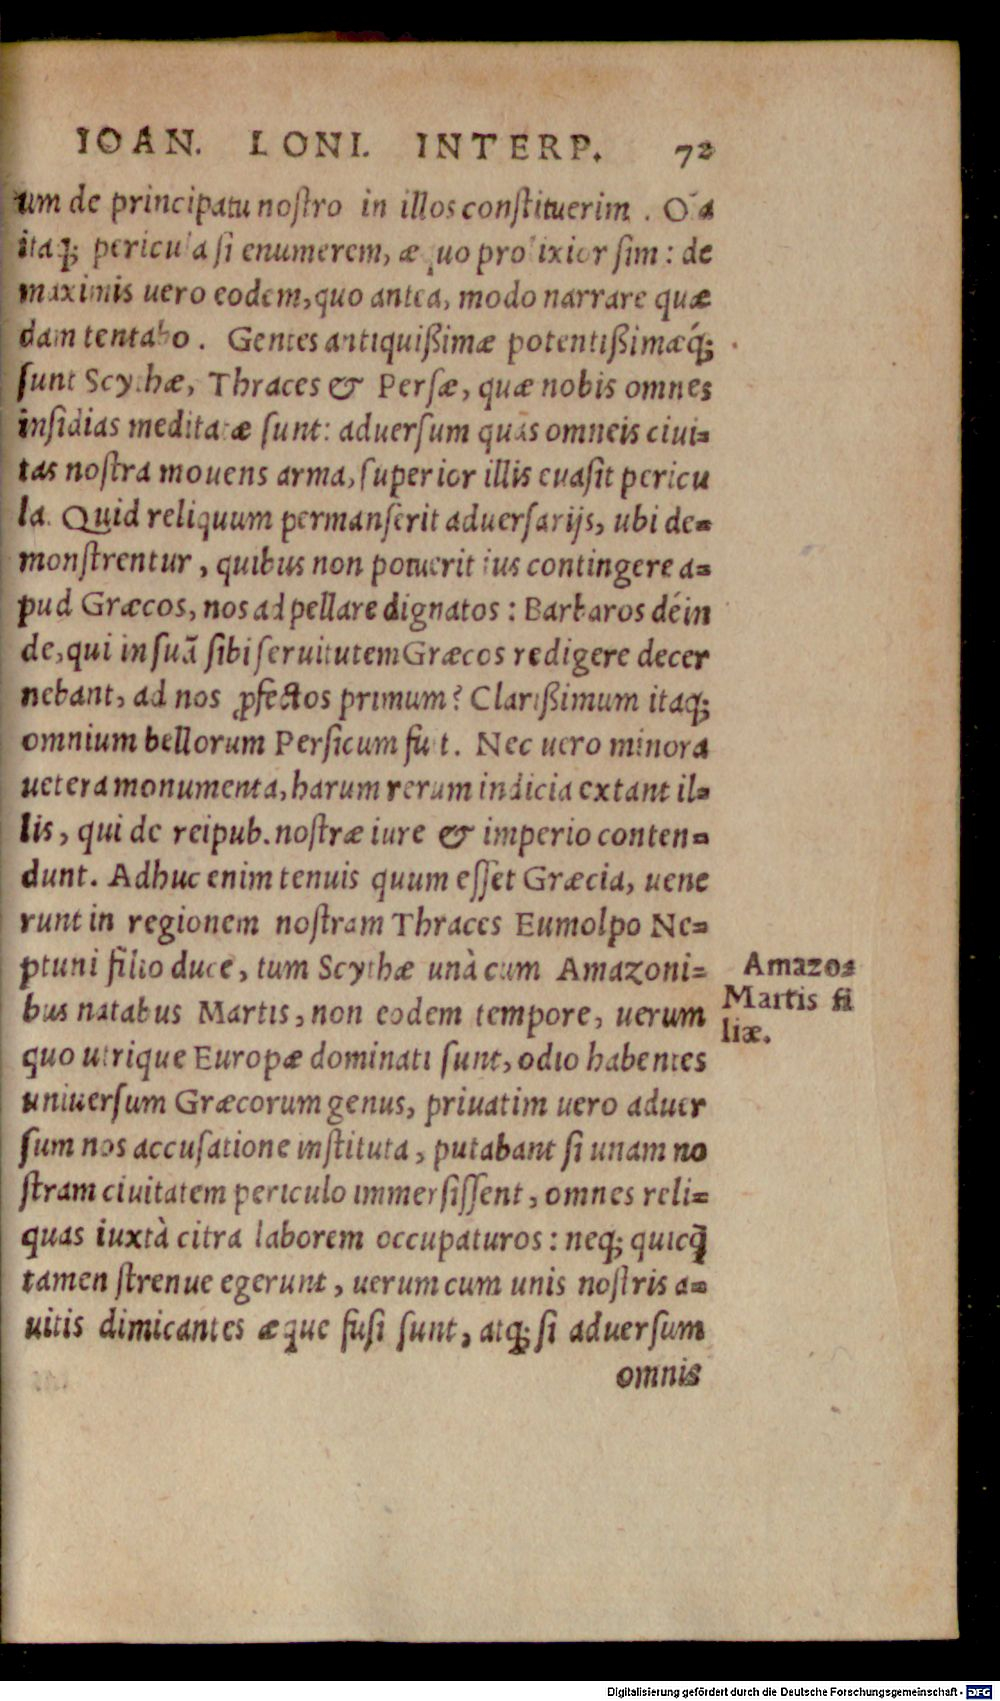 IOAN. LONI. INTERP. 72
tum de principatu nostro in illos constituerim. Oĩa
itaq; pericula si enumerem, æquo prolixior sim: de
maximis uero eodem, quo antea, modo narrare quæ
dam tentabo. Gentes antiquißimæ potentißimæq́;
sunt Scythæ, Thraces & Persæ, quæ nobis omnes
insidias meditatæ sunt: aduersum quas omneis ciui=
tas nostra mouens arma, superior illis euasit pericu
la. Quid reliquum permanserit aduersarijs, ubi de=
monstrentur, quibus non potuerit ius contingere a=
pud Græcos, nos adpellare dignatos: Barbaros déin
de, qui in suã sibi seruitutem Græcos redigere decer
nebant, ad nos ꝓfectos primum? Clarißimum itaq;
omnium bellorum Persicum fuit. Nec uero minora
uetera monumenta, harum rerum indicia extant il=
lis, qui de reipub. nostræ iure & imperio conten=
dunt. Adhuc enim tenuis quum esset Græcia, uene
runt in regionem nostram Thraces Eumolpo Ne=
ptuni filio duce, tum Scythæ unà cum Amazoni=
bus natabus Martis, non eodem tempore, uerum
quo utrique Europæ dominati sunt, odio habentes
uniuersum Græcorum genus, priuatim uero aduer
sum nos accusatione instituta, putabant si unam no
stram ciuitatem periculo immersissent, omnes reli=
quas iuxtà citra laborem occupaturos: neq; quicq̃
tamen strenue egerunt, uerum cum unis nostris a=
uitis dimicantes æque fusi sunt, atq; si aduersum
omnis
Amazo=
Martis fi
liæ.
Digitalisierung gefördert durch die Deutsche Forschungsgemeinschaft - DFG